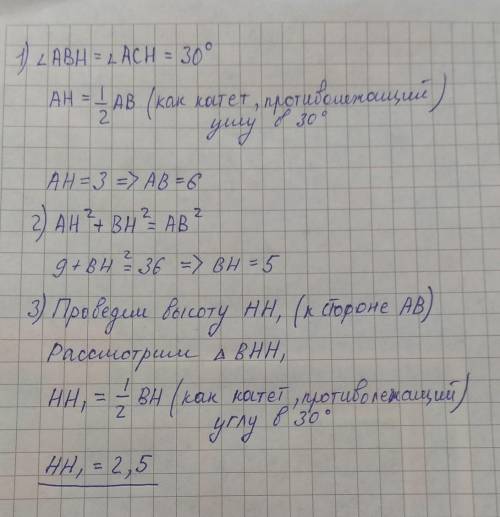 1) ∠ABH = ∠ACH = 30°
AH = 1/2 AB (как катет, противолежащий)
углу в 30°
AH = 3 => AB = 6
2) AH² + BH² = AB²
9 + BH² = 36 => BH = 5
3) Проведим высоту HH₁ (к стороне AB)
Рассмотрим △ BHH₁
HH₁ = 1/2 BH (как катет, противолежащий)
углу в 30°
HH₁ = 2,5